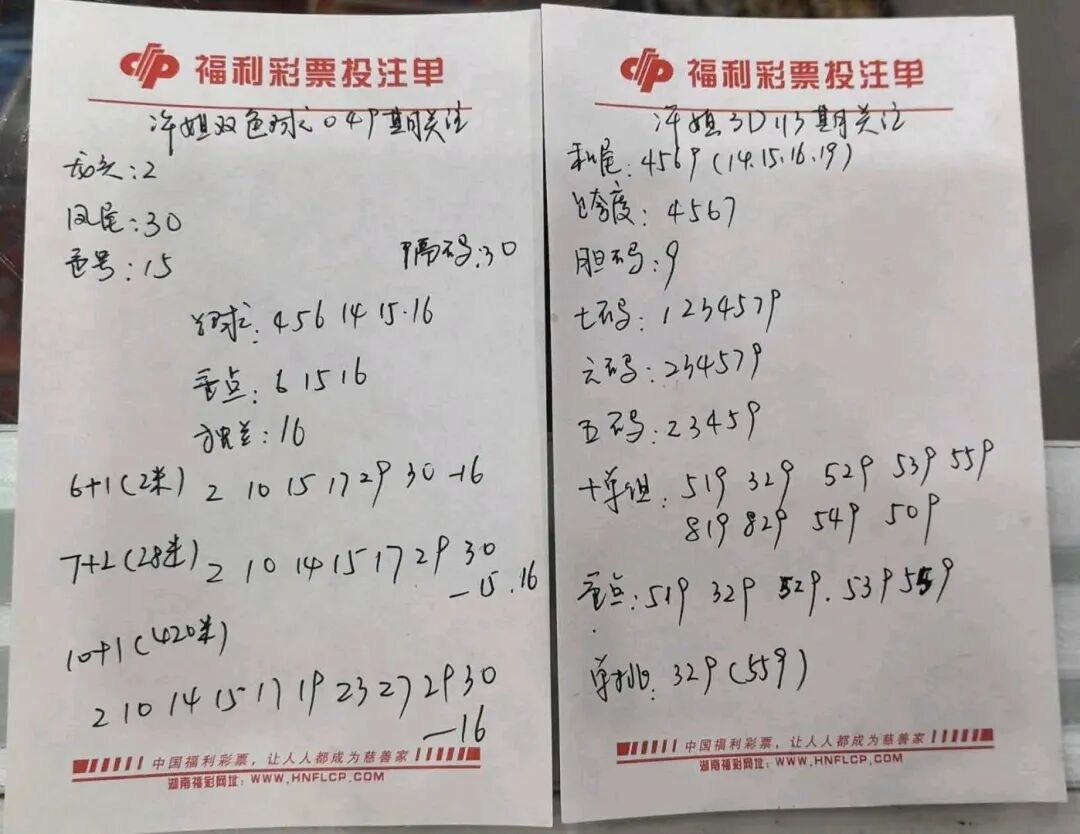 福利彩票投注单
许姐双色球049期关注
龙头:2
凤尾:30
重号:15 隔码:30
兰球:4 5 6 14 15.16
重点:6 15 16
独兰:16
6+1(2米) 2 10 15 17 29 30 -16
7+2(28米) 2 10 14 15 17 29 30
-15.16
10+1(420米)
2 10 14 15 17 19 23 27 29 30
-16
中国福利彩票,让人人都成为慈善家
湖南福彩网址:WWW.HNFLCP.COM
福利彩票投注单
许姐3D113期关注
和尾:4569(14.15.16.19)
跨度:4567
胆码:9
七码:1234579
六码:234579
五码:23459
十单组:519 329 529 539 559
819 829 549 509
重点:519 329 529.539 559
单挑:329(559)
中国福利彩票,让人人都成为慈善家
湖南福彩网址:WWW.HNFLCP.COM